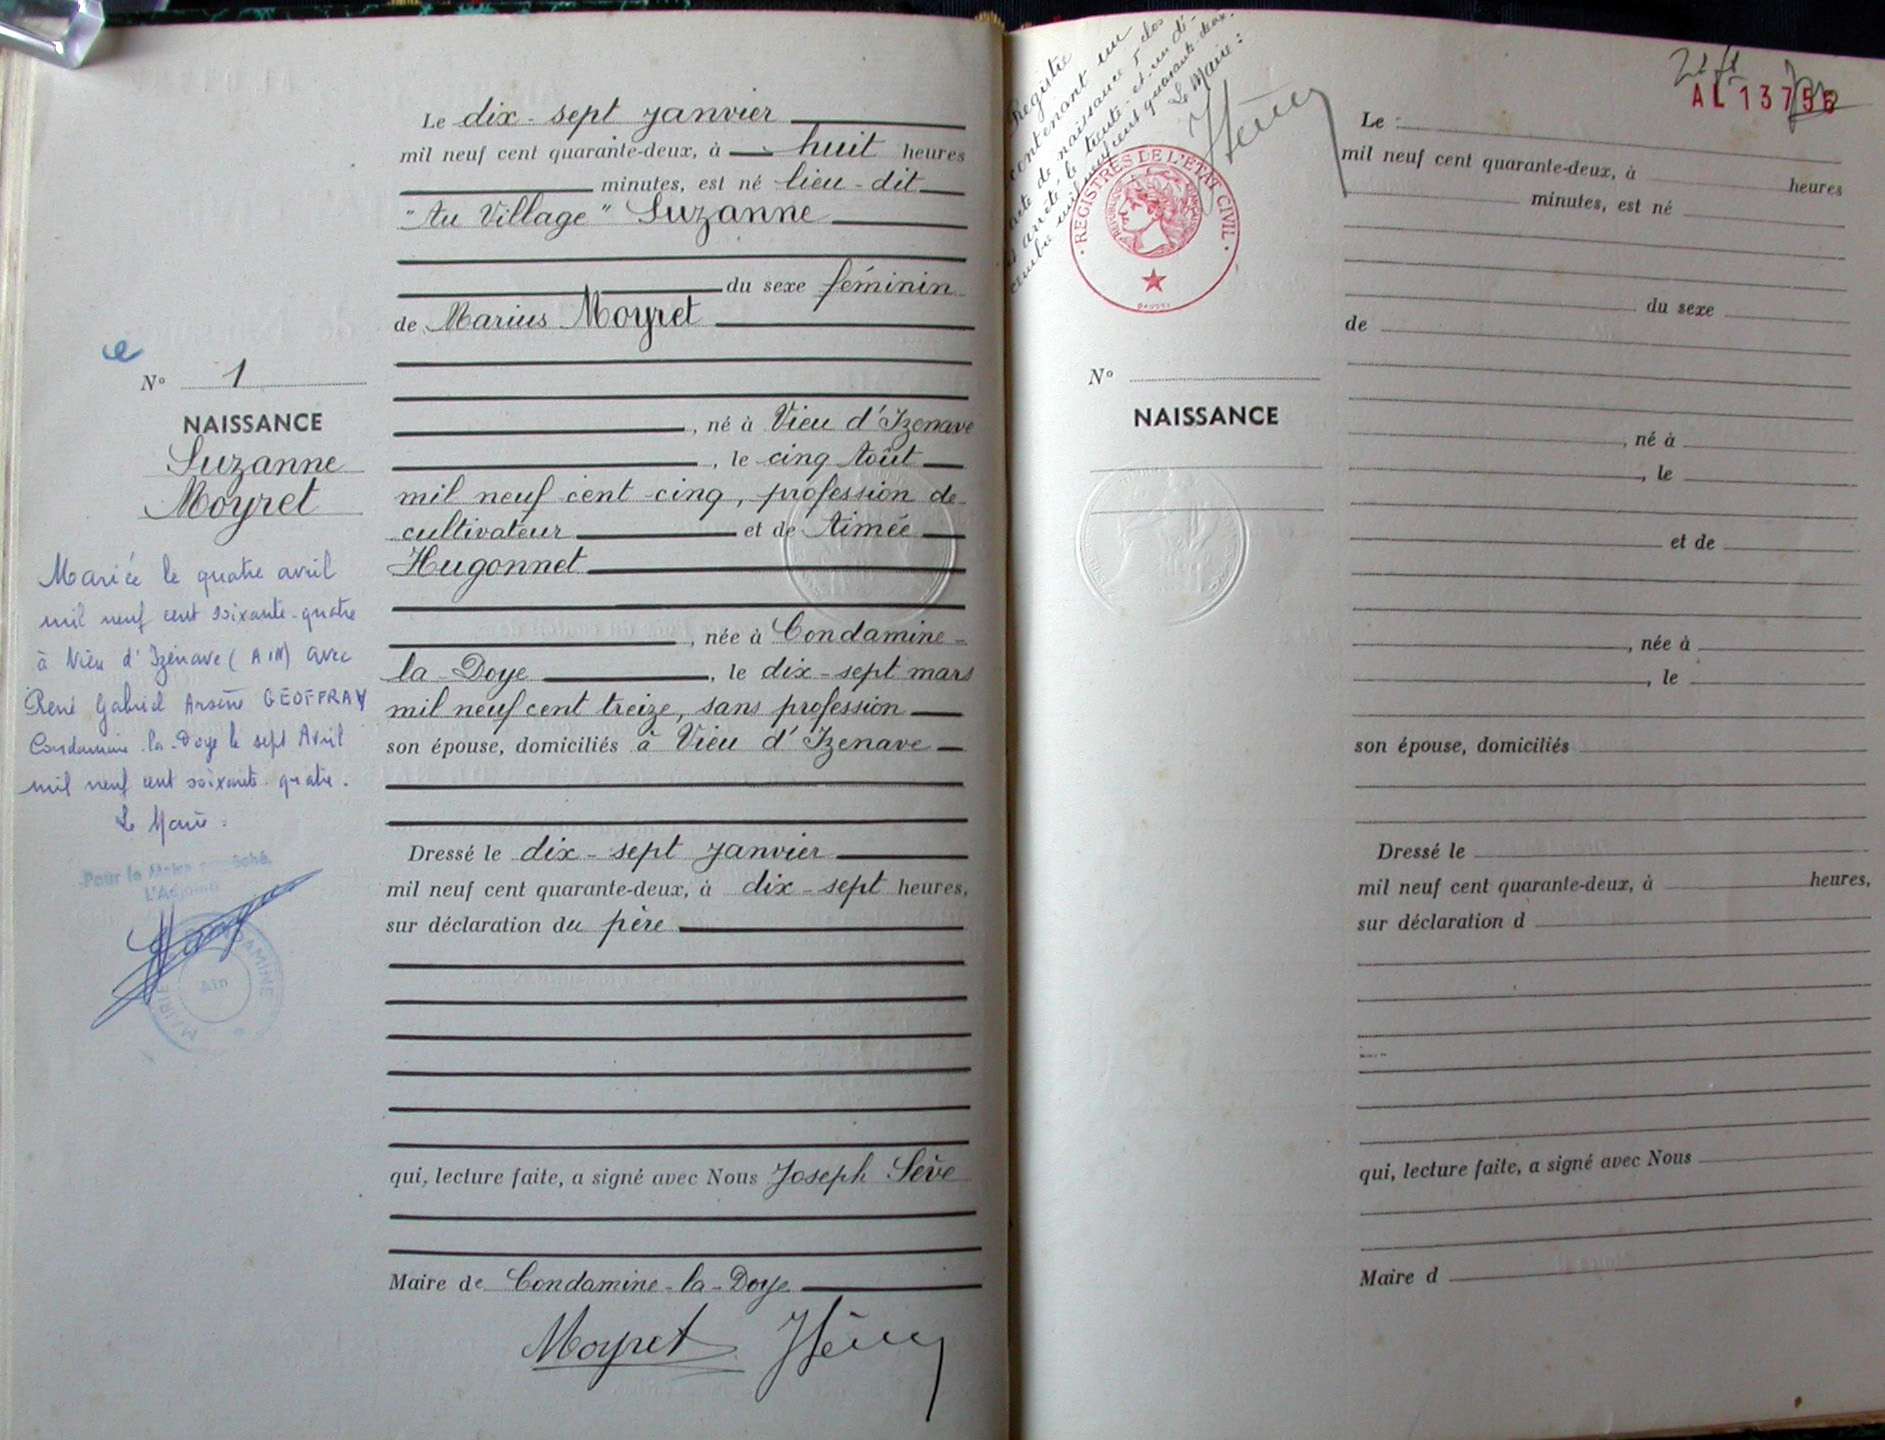 Le dix-sept janvier
mil neuf cent quarante-deux, à huit heures
minutes, est né lieu-dit
"Au Village" Suzanne
du sexe féminin
de Marius Moyret
, né à Vieu d'Izenave
, le cinq Août
mil neuf cent cinq, profession de
cultivateur et de Aimée
Hugonnet
, née à Condamine-
la-Doye, le dix-sept mars
mil neuf cent treize, sans profession
son épouse, domiciliés à Vieu d'Izenave
Dressé le dix-sept janvier
mil neuf cent quarante-deux, à dix-sept heures,
sur déclaration du père
qui, lecture faite, a signé avec Nous Joseph Sève
Maire de Condamine-la-Doye
Moyret
N° 1
NAISSANCE
Suzanne
Moyret
Mariée le quatre avril
mil neuf cent soixante-quatre
à Vieu d'Izénave (AIN) avec
René Gabriel Arsène GEOFFRAY
Condamine-la-Doye le sept Avril
mil neuf cent soixante-quatre.
Le Maire :
Pour le Maire
L'Adjoint
MAIRIE
Ain
Registre
contenant un
acte de naissance clos
et arrêté le trente-et-un dé-
cembre mil neuf cent quarante deux.
Le Maire :
REGISTRES DE L'ETAT CIVIL
N°
NAISSANCE
AL 13756
Le
mil neuf cent quarante-deux, à heures
minutes, est né
du sexe
de
, né à
, le
et de
, née à
, le
son épouse, domiciliés
Dressé le
mil neuf cent quarante-deux, à heures,
sur déclaration d
qui, lecture faite, a signé avec Nous
Maire d